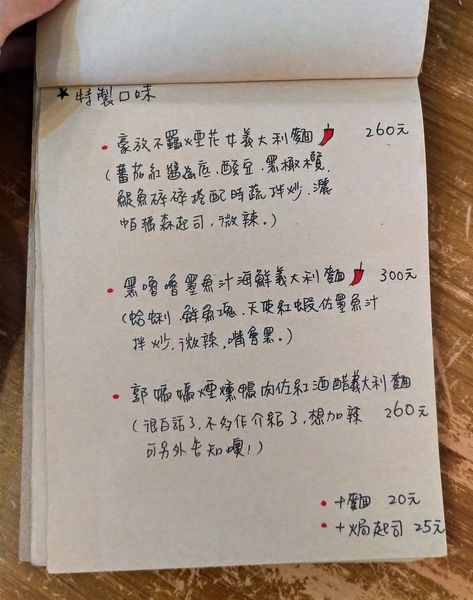 ★ 特製口味
• 豪放不羈煙花女義大利麵 260元
(蕃茄紅醬為底.酸豆.黑橄欖.
鯷魚碎碎搭配時蔬拌炒.灑
帕瑪森起司,微辣。)
• 黑嚕嚕墨魚汁海鮮義大利麵 300元
(蛤蜊.鮮魚塊.天使紅蝦佐墨魚汁
拌炒,微辣,嘴會黑。)
• 郭媽媽煙燻鴨肉佐紅酒醋義大利麵
(很白話了,不多作介紹了,想加辣 260元
可另外告知噢!)
• +麵 20元
• +焗起司 25元